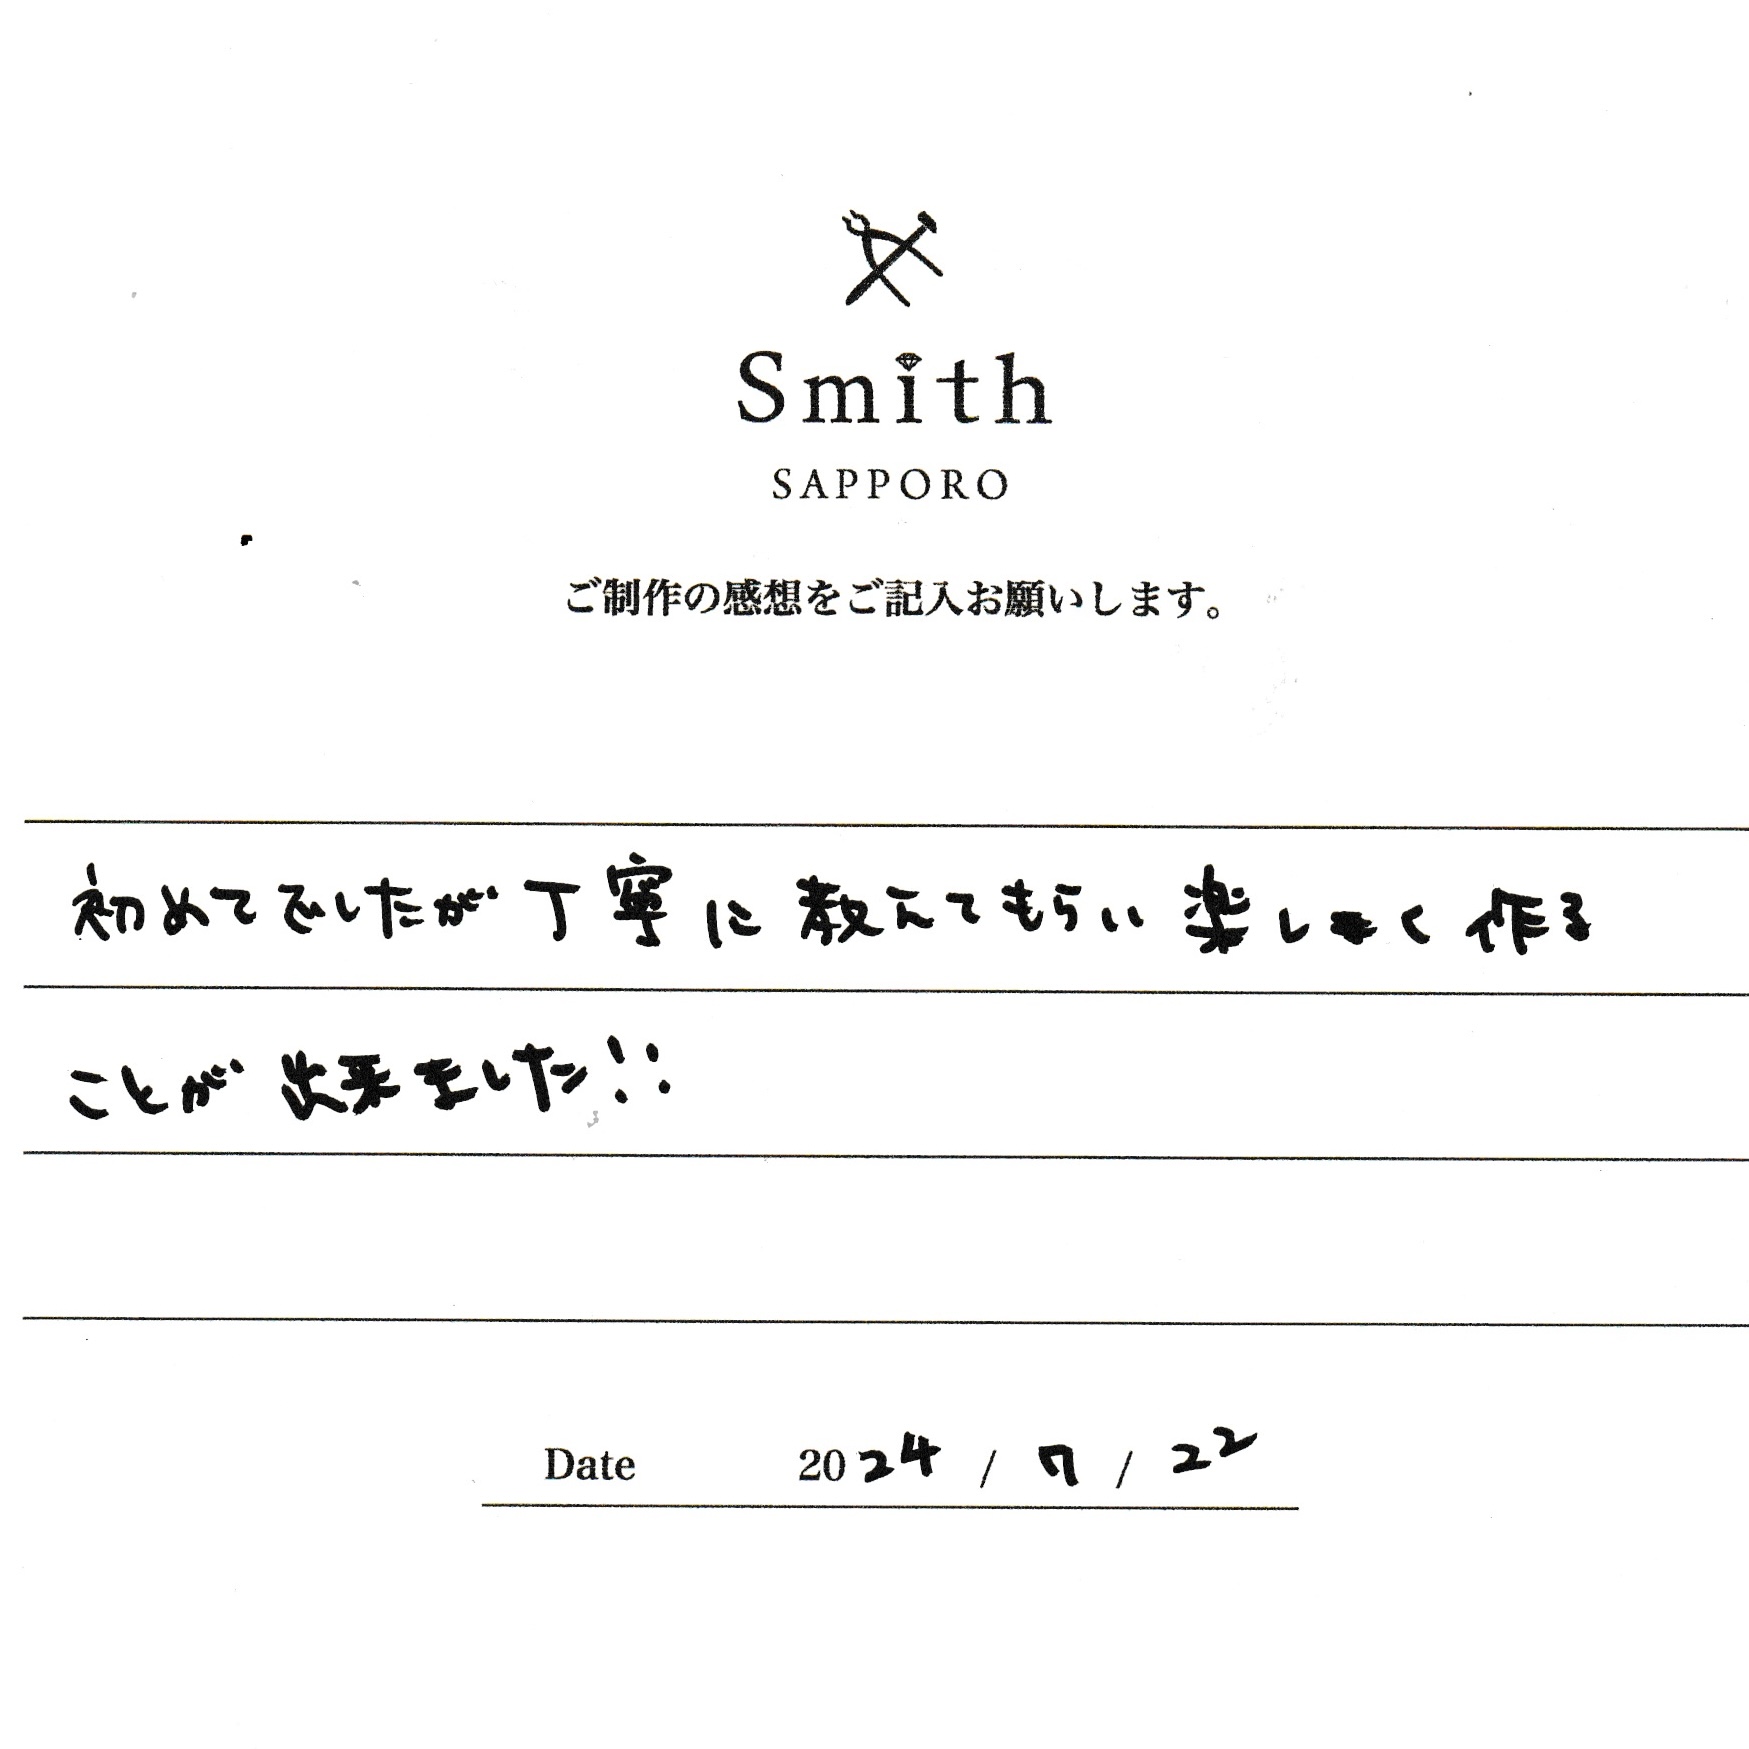 Smith
SAPPORO
ご制作の感想をご記入お願いします。
初めてでしたが丁寧に教えてもらい楽しく作る
ことが出来ました!!
Date 2024 / 7 / 22